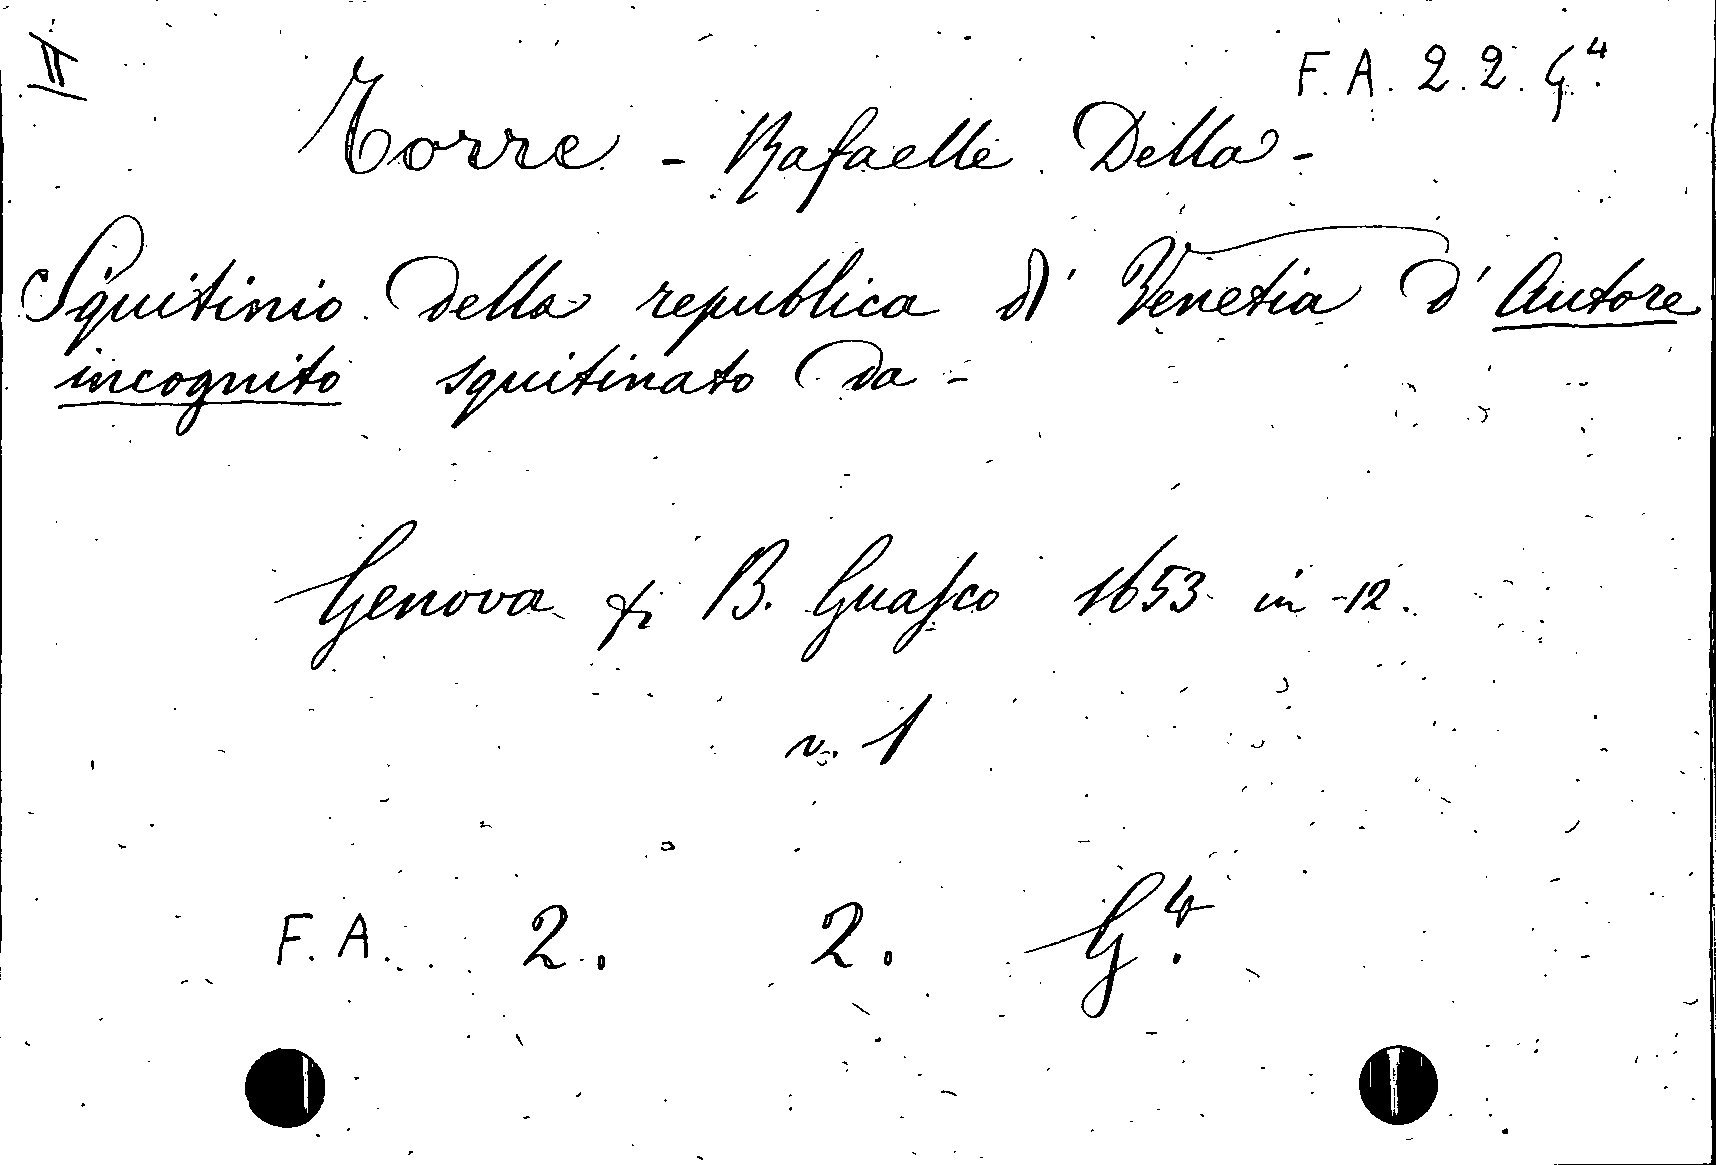 II
F. A. 2. 2. G⁴.
Torre - Rafaelle Della -
Squitinio della republica di Venetia d' Autore
incognito squitinato da -
Genova p. B. Guasco 1653 in -12.
v. 1
F. A. 2. 2. G⁴.